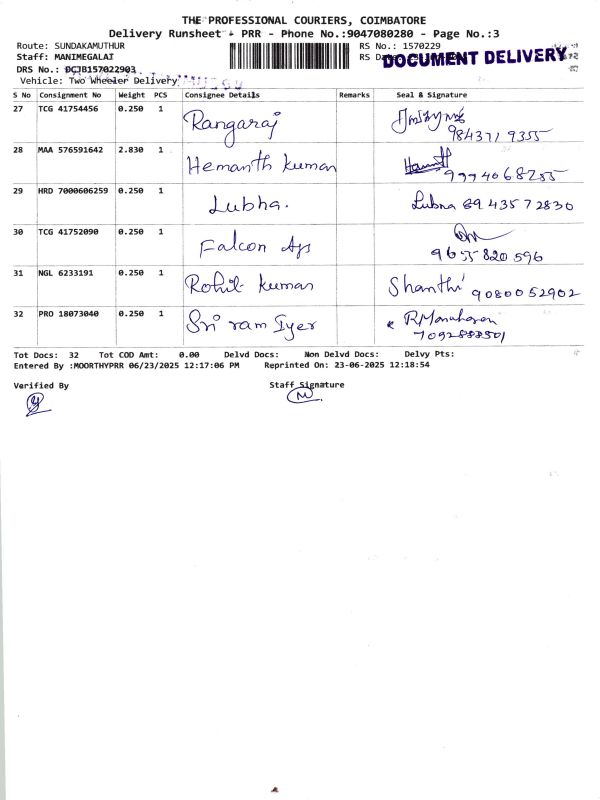 THE PROFESSIONAL COURIERS, COIMBATORE
Delivery Runsheet - PRR - Phone No.:9047080280 - Page No.:3
Route: SUNDAKAMUTHUR RS No.: 1570229
Staff: MANIMEGALAI RS
DOCUMENT DELIVERY
DRS No.: DCJB157022903
Vehicle: Two Wheeler Delivery
S No Consignment No Weight PCS Consignee Details Remarks Seal & Signature
27 TCG 41754456 0.250 1 Rangaraj
984371 9355
28 MAA 576591642 2.830 1 Hemanth kumar
9994068255
29 HRD 7000606259 0.250 1 Lubha. Lubna 8943572830
30 TCG 41752090 0.250 1 Falcon Ajs
9655820596
31 NGL 6233191 0.250 1 Rohit kumar Shanthi 9080052902
32 PRO 18073040 0.250 1 Sri ram Iyer R Manoharan
7092888501
Tot Docs: 32 Tot COD Amt: 0.00 Delvd Docs: Non Delvd Docs: Delvy Pts:
Entered By :MOORTHYPRR 06/23/2025 12:17:06 PM Reprinted On: 23-06-2025 12:18:54
Verified By Staff Signature